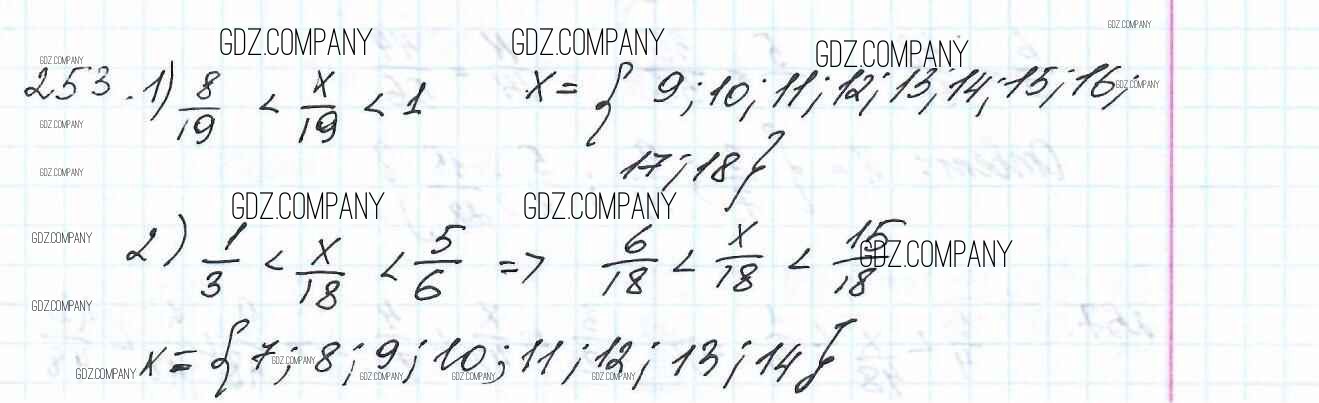 GDZ.COMPANY
GDZ.COMPANY GDZ.COMPANY GDZ.COMPANY
GDZ.COMPANY
253.1) 8/19 < x/19 < 1 x = { 9; 10; 11; 12; 13; 14; 15; 16;
GDZ.COMPANY
GDZ.COMPANY
17; 18}
GDZ.COMPANY
GDZ.COMPANY GDZ.COMPANY
GDZ.COMPANY GDZ.COMPANY
2) 1/3 < x/18 < 5/6 => 6/18 < x/18 < 15/18
GDZ.COMPANY
x = {7; 8; 9; 10; 11; 12; 13; 14}
GDZ.COMPANY GDZ.COMPANY GDZ.COMPANY GDZ.COMPANY GDZ.COMPANY